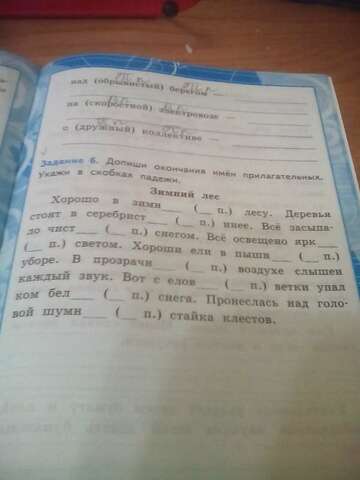 над (обрывистый) берегом
на (скоростной) электровозе –
с (дружный) коллективе –
Задание 6. Допиши окончания имён прилагательных.
Укажи в скобках падежи.
Зимний лес
Хорошо в зимн___ (__ п.) лесу. Деревья
стоят в серебрист___ (__ п.) инее. Всё засыпа-
ло чист___ (__ п.) снегом. Всё освещено ярк___
(__ п.) светом. Хороши ели в пышн___ (__ п.)
уборе. В прозрачн___ (__ п.) воздухе слышен
каждый звук. Вот с елов___ (__ п.) ветки упал
ком бел___ (__ п.) снега. Пронеслась над голо-
вой шумн___ (__ п.) стайка клестов.